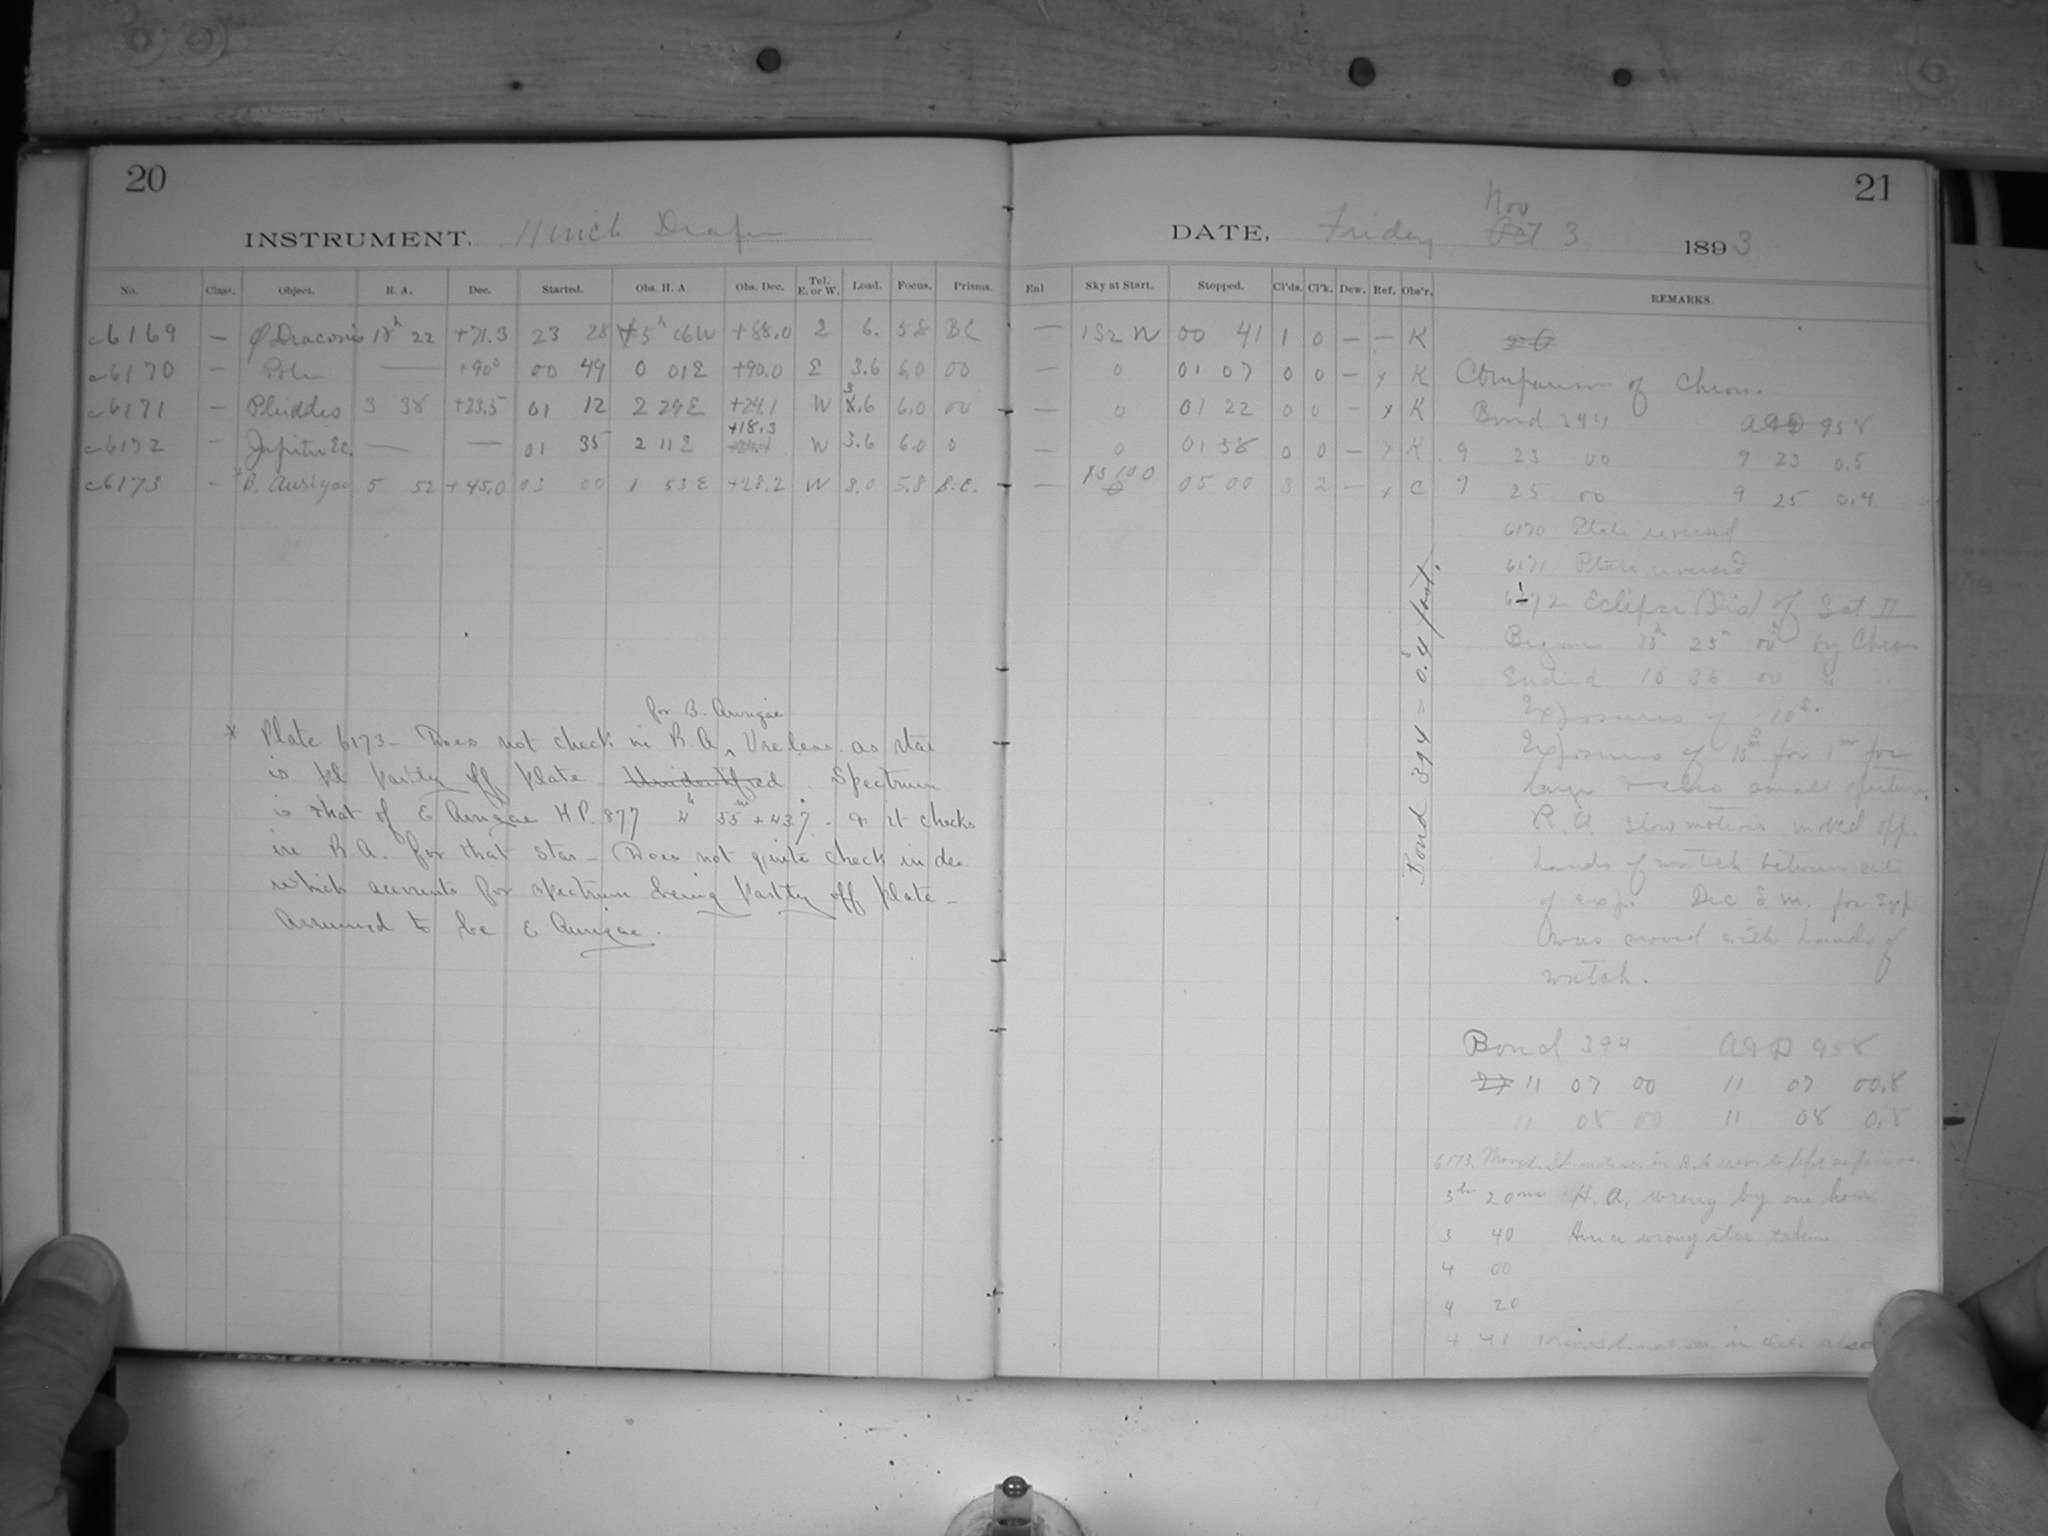 20
INSTRUMENT, 11 inch Draper
No. Class. Object. R. A. Dec. Started. Obs. H. A. Obs. Dec. Tel. E. or W. Load. Focus. Prisms.
c6169 — φ Draconis 18h 22 +71.3 23 28 5h 06W +88.0 E 6. 5.8 BC
c6170 — Pole — +90° 00 49 0 01E +90.0 E 3.6 6.0 00
c6171 — Pleiddes 3 38 +23.5 01 12 2 29E +24.1 W 3.6 6.0 00
c6172 — Jupiter Ec. — — 01 35 2 11E +18.3 W 3.6 6.0 0
c6173 — *B. Aurigae 5 52 +45.0 03 00 1 53E +28.2 W 8.0 5.8 B.C.
* Plate 6173 - Does not check in R.A. for B. Aurigae Useless. as star
is partly off plate Unidentified. Spectrum
is that of E Aurigae H.P. 877 4h 55m +43°.7 - & it checks
in R.A. for that star - Does not quite check in dec.
which accounts for spectrum being partly off plate -
Assumed to be E Aurigae.
21
DATE, Friday Oct Nov 3 1893
Enl Sky at Start. Stopped. Cl'ds. Cl'k. Dew. Ref. Obs'r. REMARKS.
— 1S2 W 00 41 1 0 — — K
— 0 01 07 0 0 — x K
— 0 01 22 0 0 — x K
— 0 01 58 0 0 — x K
— 05 00 3 2 — x C
Comparison of Chron.
Bond 394 A&D 958
9 23 00 9 23 0.5
9 25 00 9 25 0.4
6170 Plate reversed
6171 Plate reversed
6172 Eclipse (Dis) of Sat II
Began 10h 25m 00s by Chron
Ended 10 36 00 " "
Exposures of 10s.
Exposures of 10s for 1m for
large & also small aperture
R.A. slow motions moved opp.
hands of watch between sets
of exp. Dec S. M. for exp
was moved with hands of
watch.
Bond 394 = 0.4 fast.
Bond 394 A&D 958
11 07 00 11 07 00.8
11 08 00 11 08 0.8
6173. Moved
3h 20m H. A. wrong by one hour
3 40 Hence wrong star taken
4 00
4 20
4 41 in dec. also